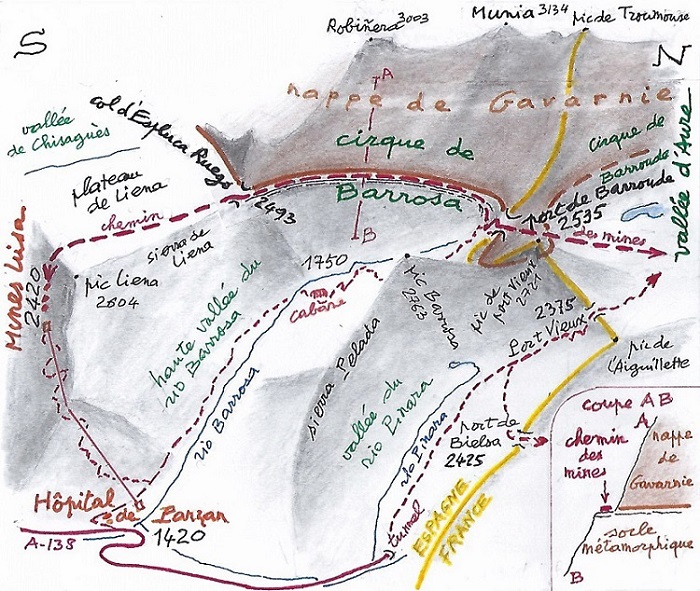 S
Robiñera 3003
Munia 3134
pic de Troumouse
N
nappe de Gavarnie
A
vallée
de Chisagüès
col d'Espluca Ruego
2493
cirque de
Barrosa
B
cirque de
Barroude
port de Barroude
2535
vallée d'Aure
plateau
de Liena
chemin
des mines
sierra de
Liena
Mines Luisa
2420
pic Liena
2604
haute vallée du
rio Barrosa
1750
cabane
pic Barrosa
2763
pic de
port Vieux
2721
2375
Port Vieux
pic de
l'Aiguillette
sierra Pelada
vallée du
rio Pinara
rio Barrosa
rio Pinara
port de
Bielsa
2425
tunnel
ESPAGNE
FRANCE
Hôpital
de Parzan
1420
A-138
coupe AB
A
chemin
des
mines
nappe
de
Gavarnie
socle
métamorphique
B